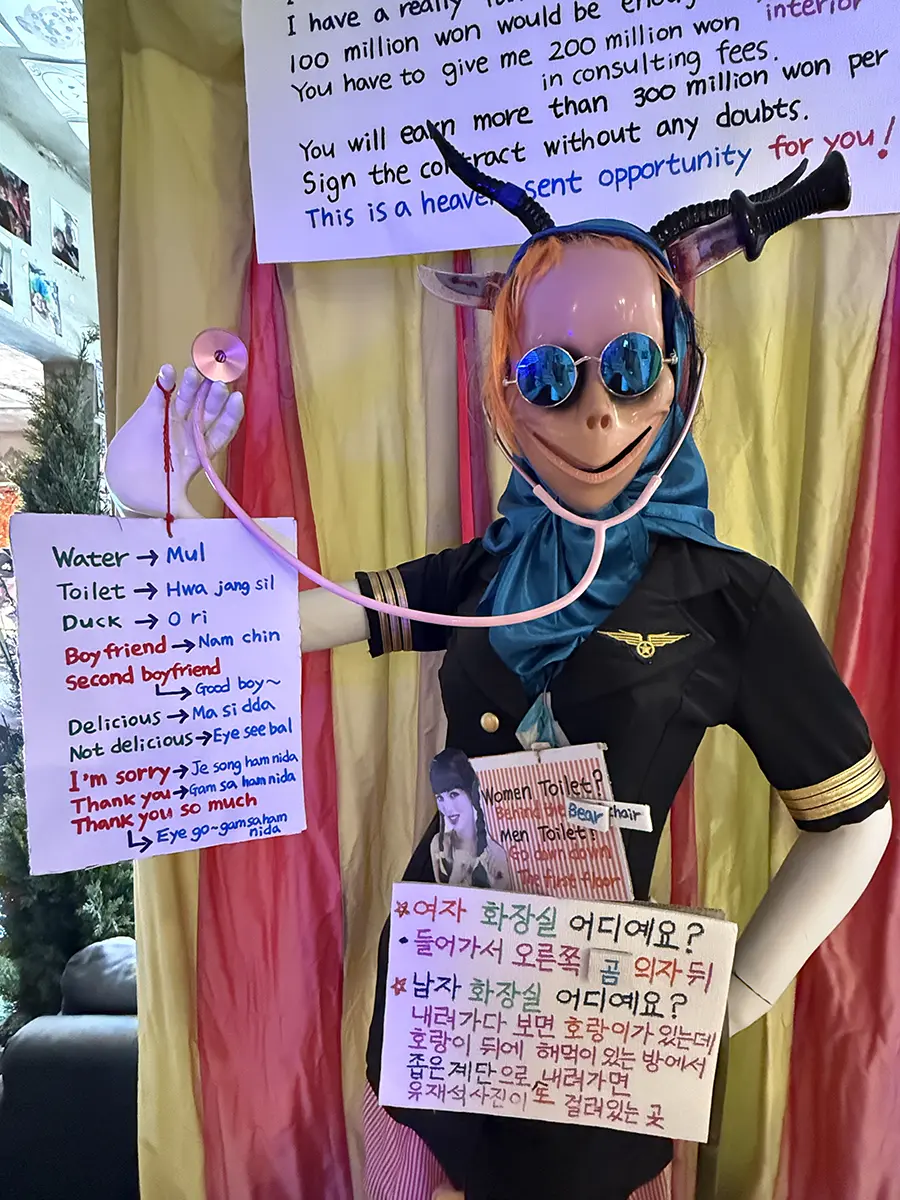 I have a really
100 million won would be enough
You have to give me 200 million won "interior
in consulting fees.
You will earn more than 300 million won per
Sign the contract without any doubts.
This is a heaven sent opportunity for you!
Water → Mul
Toilet → Hwa jang sil
Duck → O ri
Boyfriend → Nam chin
Second boyfriend
↳ Good boy~
Delicious → Ma si dda
Not delicious → Eye see bal
I'm sorry → Je song ham nida
Thank you → Gam sa ham nida
Thank you so much
↳ Eye go~ gam sa ham
nida
Women Toilet?
Behind big Bear chair
men Toilet?
Go down down
The first floor
☆여자 화장실 어디예요?
• 들어가서 오른쪽 곰 의자 뒤
☆남자 화장실 어디예요?
내려가다 보면 호랑이가 있는데
호랑이 뒤에 해먹이 있는 방에서
좁은 계단으로 내려가면
유재석 사진이 또 걸려있는 곳